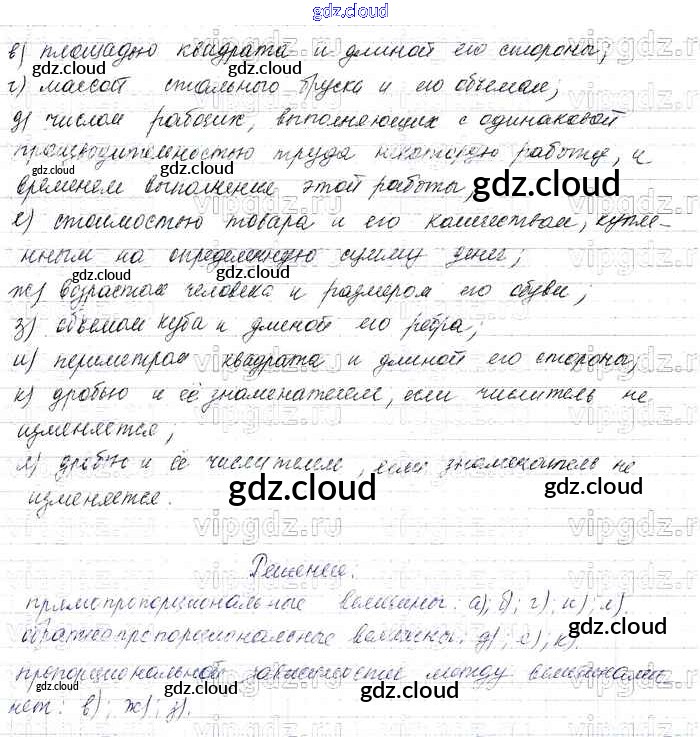 gdz.cloud
в) площадью квадрата и длиной его стороны;
г) массой стального бруска и его объемом;
д) числом рабочих, выполняющих с одинаковой
производительностью труда некоторую работу, и
временем выполнения этой работы;
е) стоимостью товара и его количеством, куплен-
нным на определенную сумму денег;
ж) возрастом человека и размером его обуви;
з) объемом куба и длиной его ребра;
и) периметром квадрата и длиной его стороны;
к) дробью и её знаменателем, если числитель не
изменяется;
л) дробью и её числителем, если знаменатель не
изменяется.
Решение:
прямо пропорциональные величины: а); б); г); и); л).
обратно пропорциональные величины: д); е), к).
пропорциональной зависимости между величинами
нет: в); ж); з).